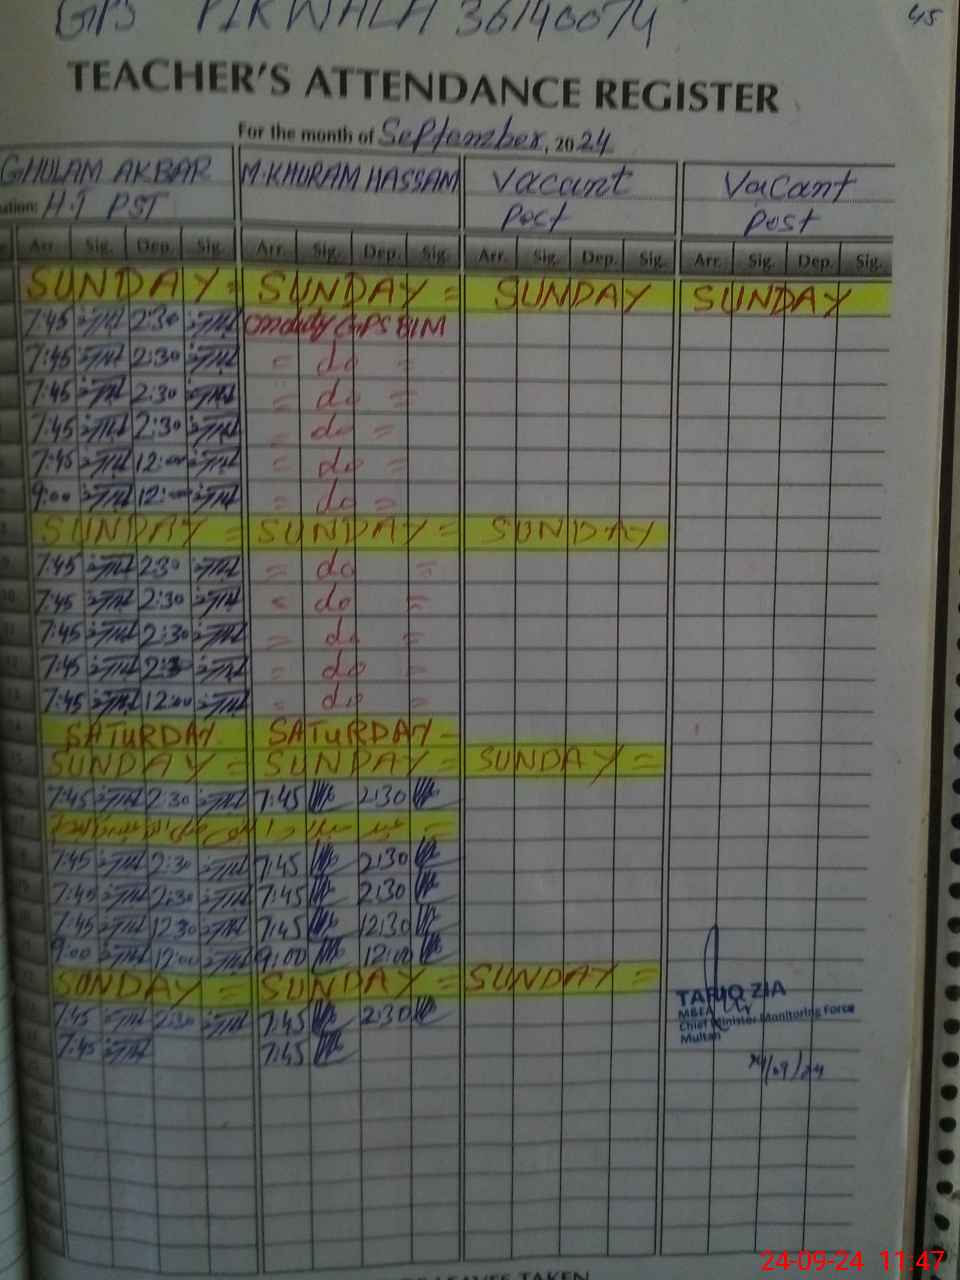 GPS PIRWALA 36140074 45
TEACHER'S ATTENDANCE REGISTER
For the month of September, 2024
GHULAM AKBAR M.KHURAM HASSAM Vacant Vacant
ation: H.T PST Post Post
Arr. Sig. Dep. Sig. Arr. Sig. Dep. Sig. Arr. Sig. Dep. Sig. Arr. Sig. Dep. Sig.
SUNDAY = SUNDAY = SUNDAY SUNDAY
7:45 2:30 onduty GPS BIM
7:45 2:30 = do =
7:45 2:30 = do =
7:45 2:30 = do =
7:45 12:00 = do =
9:00 12:00 = do =
8 SUNDAY = SUNDAY = SUNDAY
9 7:45 2:30 = do =
10 7:45 2:30 = do =
11 7:45 2:30 = do =
12 7:45 2:30 = do =
13 7:45 12:00 = do =
14 SATURDAY SATURDAY -
15 SUNDAY = SUNDAY = SUNDAY =
7:45 2:30 7:45 2:30
7:45 2:30 7:45 2:30
7:45 2:30 7:45 2:30
7:45 12:30 7:45 12:30
9:00 12:00 9:00 12:00
SUNDAY = SUNDAY = SUNDAY =
7:45 2:30 7:45 2:30
7:45 7:45
TARIQ ZIA
MBEA
Chief Minister Monitoring Force
Multan
24/09/24
LEAVES TAKEN
24-09-24 11:47